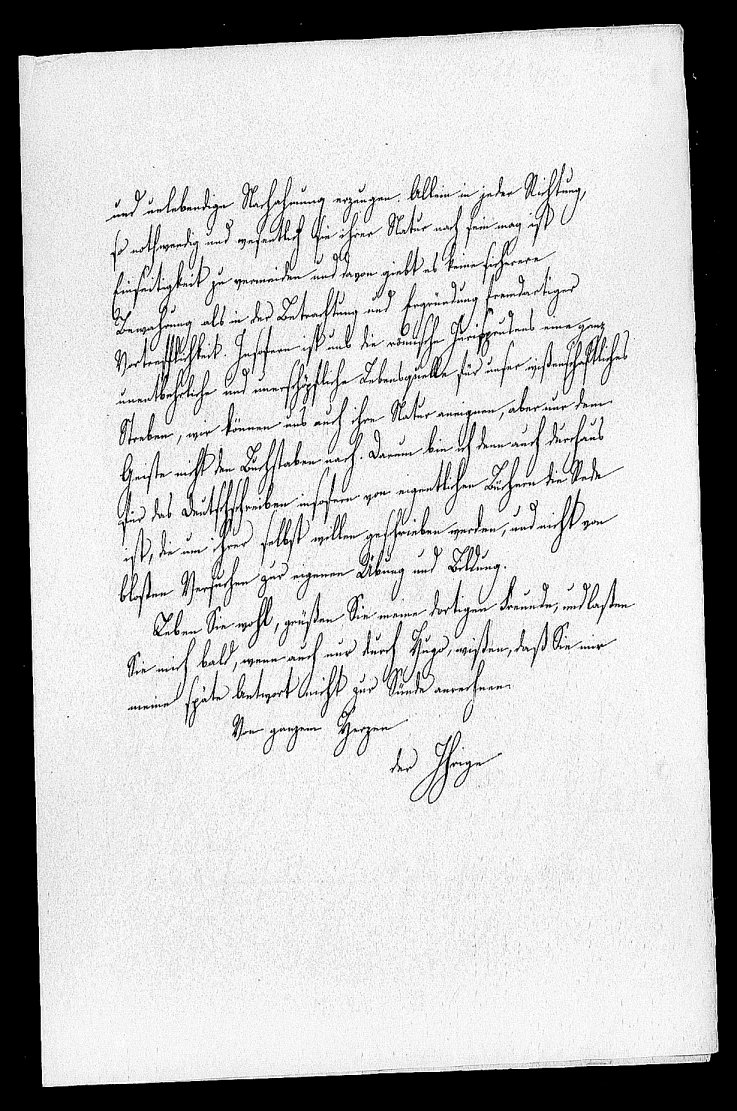 und unlebendige Nachahmung erzeugen. Allein in jeder Richtung,
so nothwendig und wesentlich sie ihrer Natur nach sein mag ist
Einseitigkeit zu vermeiden und davon giebt es keine sicherere
Bewahrung als in der Betrachtung und Ergründung fremdartiger
Vortrefflichkeit. Insofern ist uns die römische Jurisprudens eine ganz
unentbehrliche und unerschöpfliche Lebensquelle für unser wissenschaftliches
Streben, wir können uns auch ihre Natur aneignen, aber nur dem
Geiste nicht den Buchstaben nach. Darum bin ich denn auch durchaus
für das Deutschschreiben insofern von eigentlichen Büchern die Rede
ist, die um ihrer selbst willen geschrieben werden, und nicht von
bloßen Versuchen zur eigenen Übung und Bildung.
Leben Sie wohl, grüßen Sie meine dortigen Freunde, und laßen
Sie mich bald, wenn auch nur durch Hugo, wißen, daß Sie mir
meine späte Antwort nicht zur Sünde anrechnen.
Von ganzem Herzen
der Ihrige